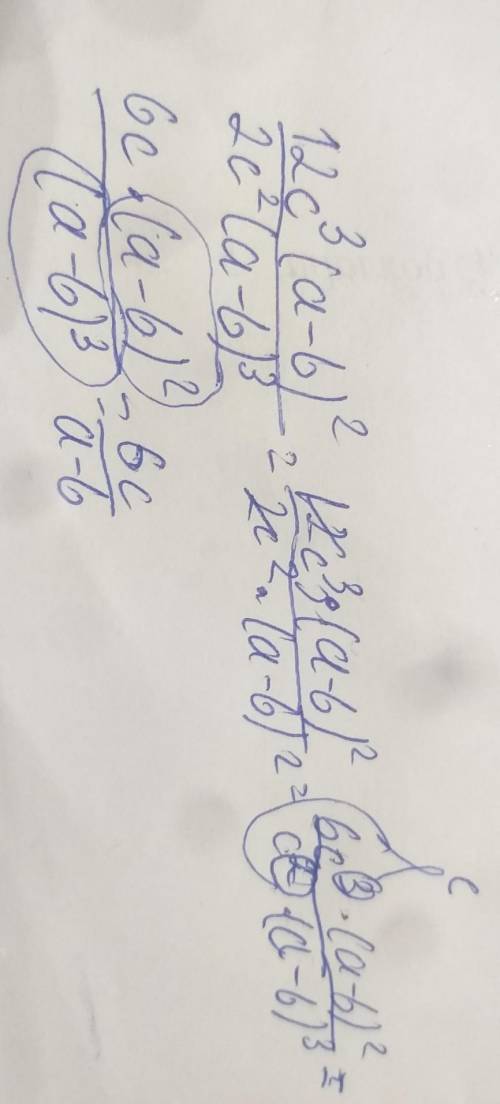 12c³(a-b)² / 2c²(a-b)³ = 12c³·(a-b)² / 2c²·(a-b)² = 6c³·(a-b)² / c²·(a-b)³ = c
6c·(a-b)² / (a-b)³ = 6c / a-b